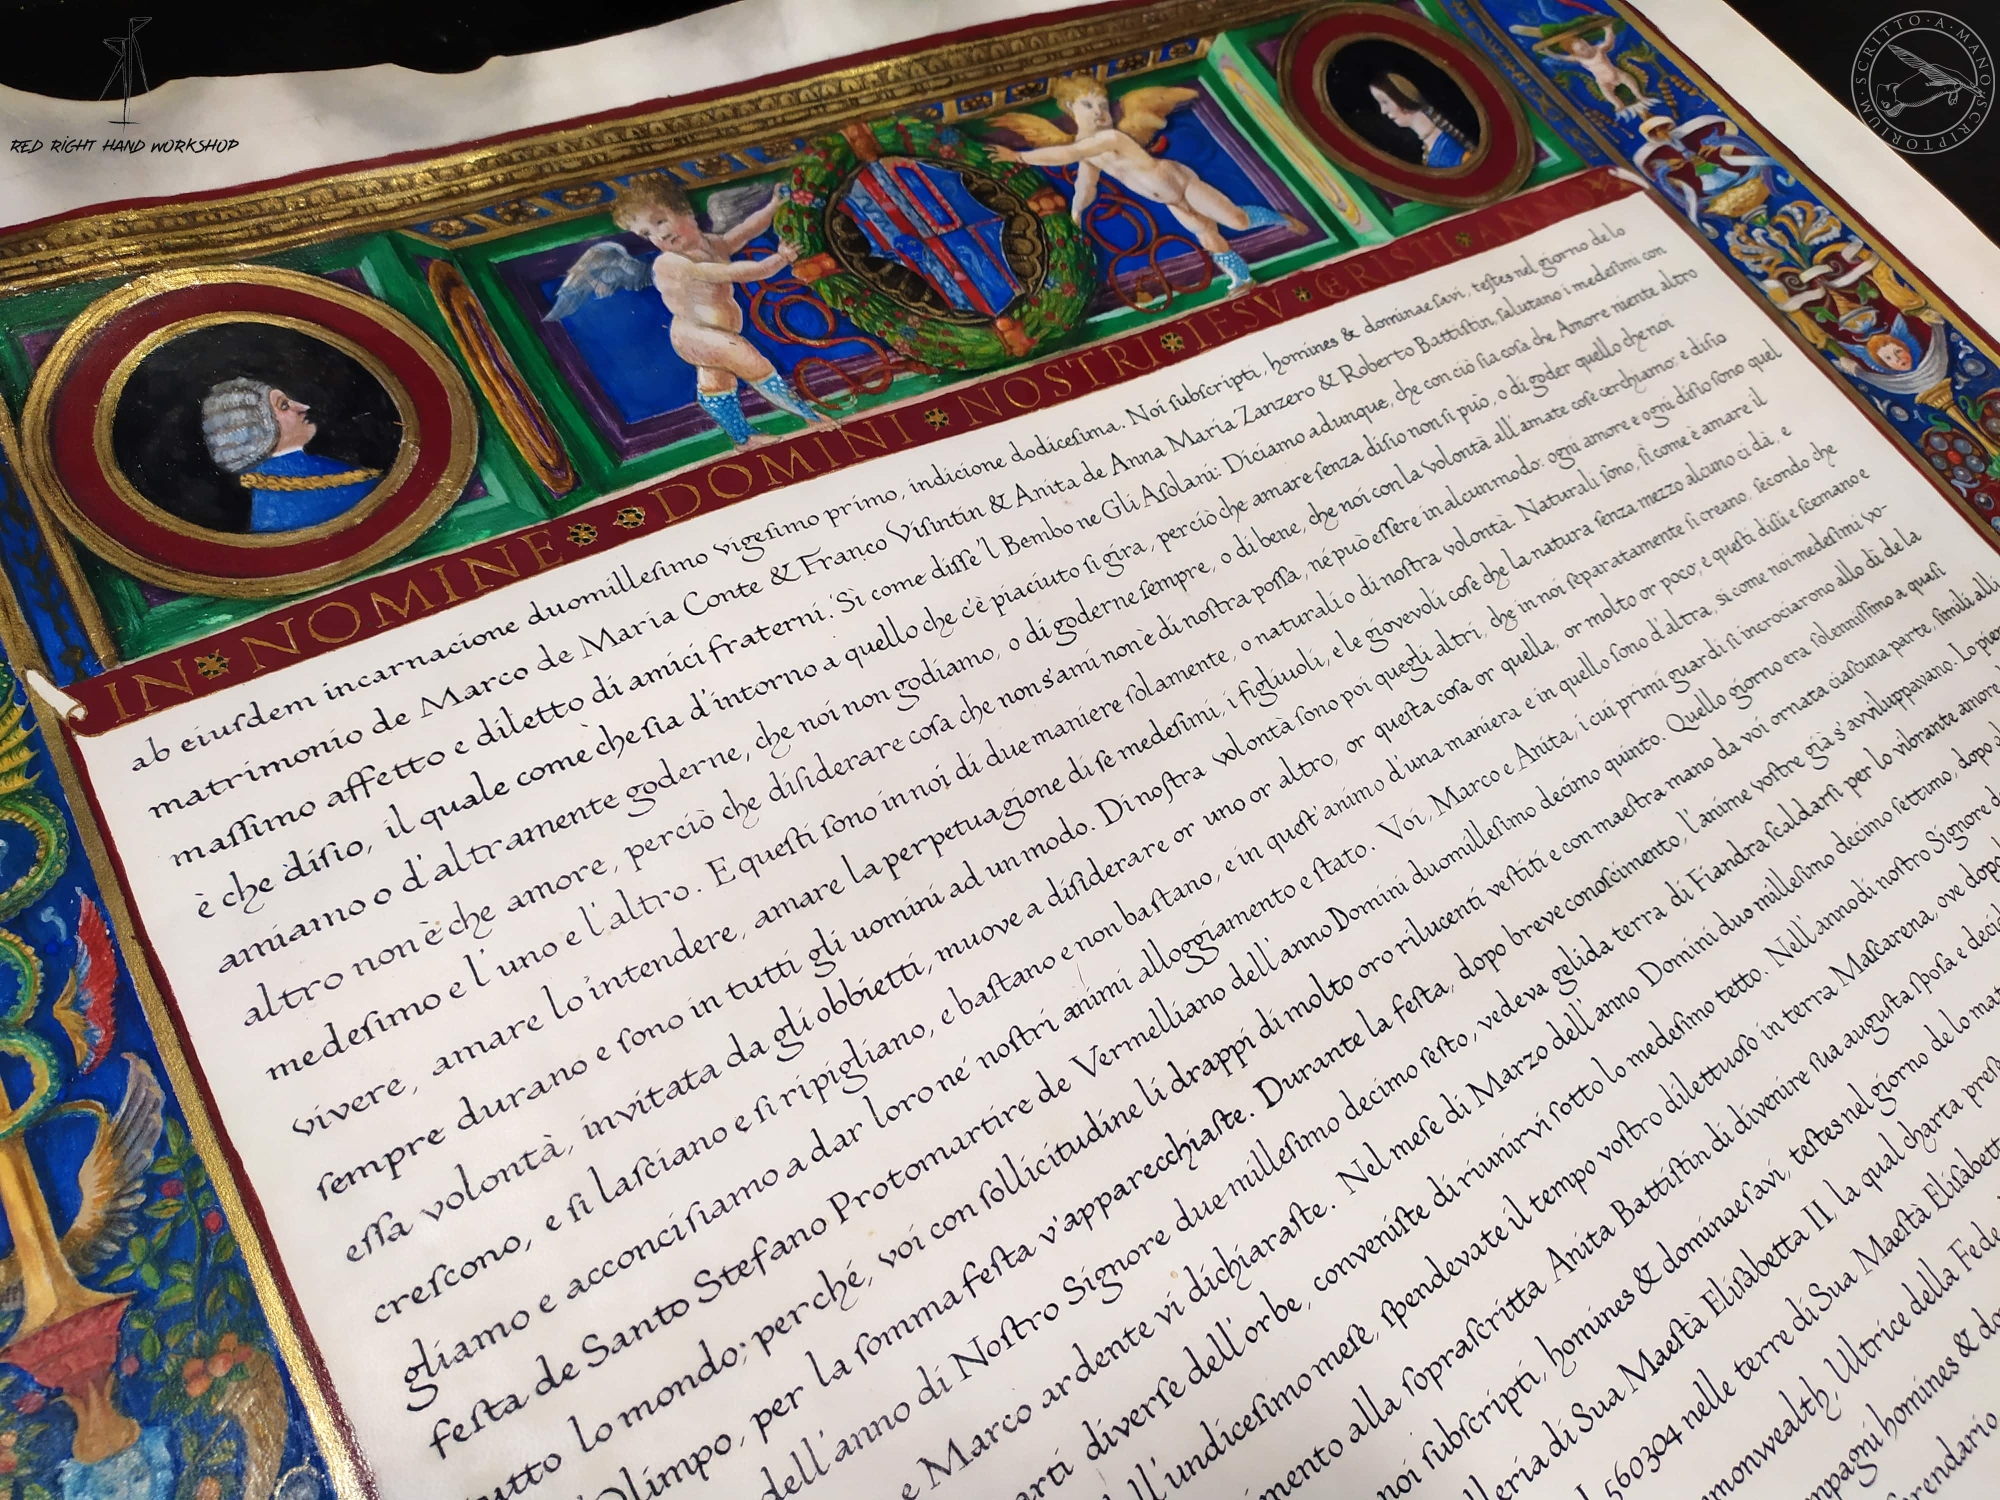 RED RIGHT HAND WORKSHOP
SCRITTO · A · MANO
SCRIPTORIUM
IN NOMINE DOMINI NOSTRI IESV CRISTI ANNO
ab eiuſdem incarnacione duomilleſimo vigeſimo primo, indicione dodiceſima. Noi ſubſcripti, homines & dominae ſavi, teſtes nel giorno de lo
matrimonio de Marco de Maria Conte & Franco Viſintin & Anita de Anna Maria Zanzero & Roberto Battiſtin, ſalutano i medeſimi con
maſſimo affetto e diletto di amici fraterni. Sì come diſſe 'l Bembo ne Gli Aſolani: Diciamo adunque, che con ciò ſia coſa che Amore niente altro
è che diſio, il quale come che ſia d'intorno a quello che c'è piaciuto ſi gira, perciò che amare ſenza diſio non ſi può, o di goder quello che noi
amiamo o d'altramente goderne, che noi non godiamo, o di goderne ſempre, o di bene, che noi con la volontà all'amate coſe cerchiamo: e diſio
altro non è che amore, perciò che diſiderare coſa che non s'ami non è di noſtra poſſa, né può eſſere in alcun modo: ogni amore e ogni diſio ſono quel
medeſimo e l'uno e l'altro. E queſti ſono in noi di due maniere ſolamente, o naturali o di noſtra volontà. Naturali ſono, ſì come è amare il
vivere, amare lo intendere, amare la perpetuagione di ſe medeſimi, i figliuoli, e le giovevoli coſe che la natura ſenza mezzo alcuno ci dà, e
ſempre durano e ſono in tutti gli uomini ad un modo. Di noſtra volontà ſono poi quegli altri, che in noi ſeparatamente ſi creano, ſecondo che
eſſa volontà, invitata da gli obbietti, muove a diſiderare or uno or altro, or queſta coſa or quella, or molto or poco; e queſti diſii e ſcemano e
creſcono, e ſi laſciano e ſi ripigliano, e baſtano e non baſtano, e in queſt'animo d'una maniera e in quello ſono d'altra, sì come noi medeſimi vo-
gliamo e acconci ſiamo a dar loro ne' noſtri animi alloggiamento e ſtato. Voi, Marco e Anita, i cui primi guardi ſi incrociarono allo dì de la
feſta de Santo Stefano Protomartire de Vermelliano dell'anno Domini duomilleſimo decimo quinto. Quello giorno era ſolenniſſimo a quaſi
tutto lo mondo; perché, voi con ſollicitudine li drappi di molto oro rilucenti veſtiti e con maeſtra mano da voi ornata ciaſcuna parte, ſimili alli
Olimpo, per la ſomma feſta v'apparecchiaſte. Durante la feſta, dopo breve conoſcimento, l'anime voſtre già s'avviluppavano. Lo
dell'anno di Noſtro Signore due milleſimo decimo ſeſto, vedeva gelida terra di Fiandra ſcaldarſi per lo vibrante amore
e Marco ardente vi dichiaraſte. Nel meſe di Marzo dell'anno Domini duo milleſimo decimo ſettimo, dopo
diverſe dell'orbe, conveniſte di riunirvi ſotto lo medeſimo tetto. Nell'anno di noſtro Signore
dell'undiceſimo meſe, ſpendevate il tempo voſtro dilettuoſo in terra Maſcarena, ove dopo
alla ſopraſcritta Anita Battiſtin di divenire ſua auguſta ſpoſa e
noi ſubſcripti, homines & dominae ſavi, teſtes nel giorno de lo
di Sua Maeſtà Eliſabetta II, la qual charta
560304 nelle terre di Sua Maeſtà
Ultrice della Fede
homines &